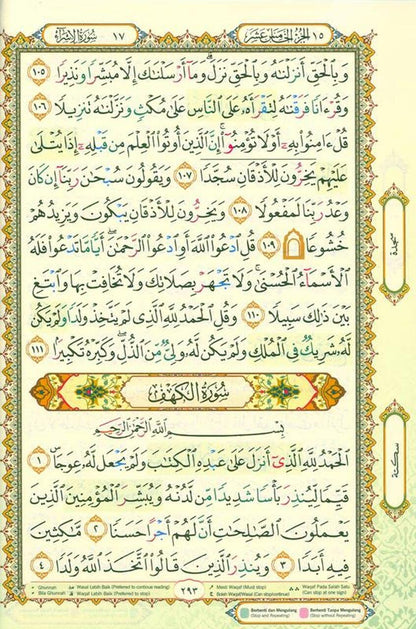 ١٥ الجزء الخامس عشر
١٧ سورة الإسراء
وَبِالْحَقِّ أَنزَلْنَٰهُ وَبِالْحَقِّ نَزَلَ ۗ وَمَآ أَرْسَلْنَٰكَ إِلَّا مُبَشِّرًا وَنَذِيرًا ١٠٥
وَقُرْءَانًا فَرَقْنَٰهُ لِتَقْرَأَهُۥ عَلَى النَّاسِ عَلَىٰ مُكْثٍ وَنَزَّلْنَٰهُ تَنزِيلًا ١٠٦
قُلْ ءَامِنُوا۟ بِهِۦٓ أَوْ لَا تُؤْمِنُوٓا۟ ۚ إِنَّ الَّذِينَ أُوتُوا۟ الْعِلْمَ مِن قَبْلِهِۦٓ إِذَا يُتْلَىٰ
عَلَيْهِمْ يَخِرُّونَ لِلْأَذْقَانِ سُجَّدًا ١٠٧ وَيَقُولُونَ سُبْحَٰنَ رَبِّنَآ إِن كَانَ
وَعْدُ رَبِّنَا لَمَفْعُولًا ١٠٨ وَيَخِرُّونَ لِلْأَذْقَانِ يَبْكُونَ وَيَزِيدُهُمْ
خُشُوعًا ١٠٩ قُلِ ادْعُوا۟ اللَّهَ أَوِ ادْعُوا۟ الرَّحْمَٰنَ ۖ أَيًّا مَّا تَدْعُوا۟ فَلَهُ
الْأَسْمَآءُ الْحُسْنَىٰ ۚ وَلَا تَجْهَرْ بِصَلَاتِكَ وَلَا تُخَافِتْ بِهَا وَابْتَغِ
بَيْنَ ذَٰلِكَ سَبِيلًا ١١٠ وَقُلِ الْحَمْدُ لِلَّهِ الَّذِى لَمْ يَتَّخِذْ وَلَدًا وَلَمْ يَكُن
لَّهُۥ شَرِيكٌ فِى الْمُلْكِ وَلَمْ يَكُن لَّهُۥ وَلِىٌّ مِّنَ الذُّلِّ ۖ وَكَبِّرْهُ تَكْبِيرًا ١١١
سُورَةُ الْكَهْفِ
بِسْمِ اللَّهِ الرَّحْمَٰنِ الرَّحِيمِ
الْحَمْدُ لِلَّهِ الَّذِىٓ أَنزَلَ عَلَىٰ عَبْدِهِ الْكِتَٰبَ وَلَمْ يَجْعَل لَّهُۥ عِوَجَا ۜ ١
قَيِّمًا لِّيُنذِرَ بَأْسًا شَدِيدًا مِّن لَّدُنْهُ وَيُبَشِّرَ الْمُؤْمِنِينَ الَّذِينَ
يَعْمَلُونَ الصَّٰلِحَٰتِ أَنَّ لَهُمْ أَجْرًا حَسَنًا ٢ مَّٰكِثِينَ
فِيهِ أَبَدًا ٣ وَيُنذِرَ الَّذِينَ قَالُوا۟ اتَّخَذَ اللَّهُ وَلَدًا ٤
سجدة
سكتة
٢٩٣
Ghunnah
Bila Ghunnah
Waqaf Lebih Baik (Preferred to continue reading)
Waqaf Lebih Baik (Preferred to stop)
Mesti Waqaf (Must stop)
Boleh Waqaf/Wasal (Can stop/continue)
Waqaf Pada Salah Satu
(Can stop at one sign)
Berhenti dan Mengulang
(Stop and Repeating)
Berhenti Tanpa Mengulang
(Stop without Repeating)